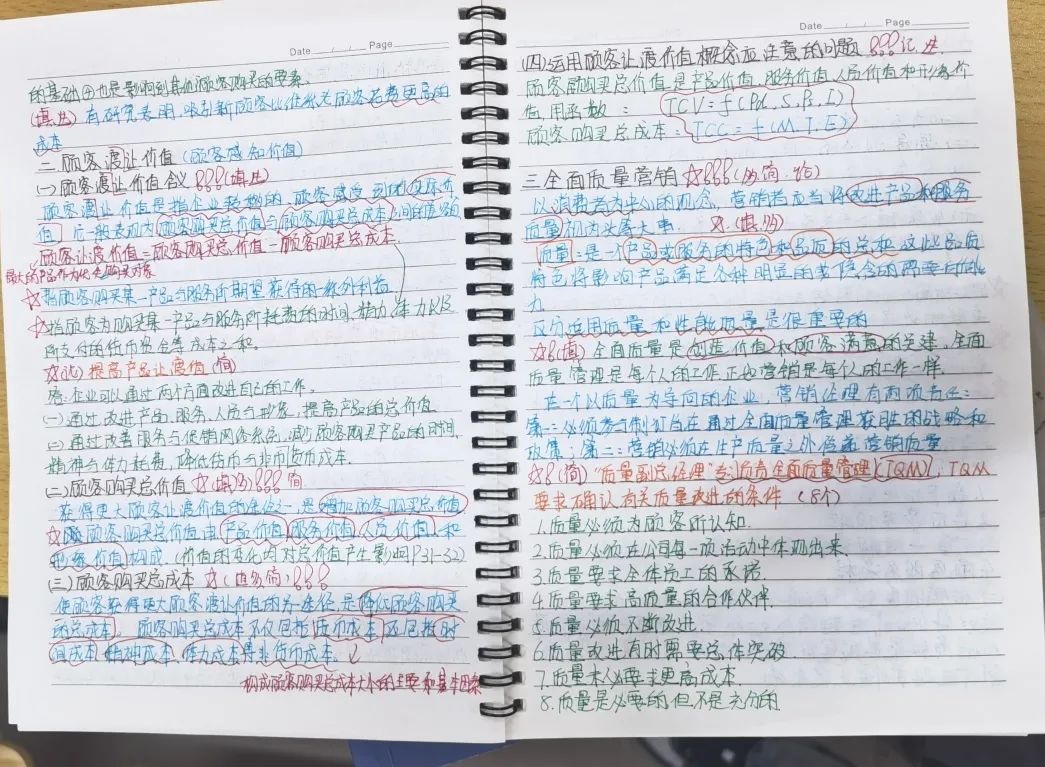 Date / / Page
的基础④也是影响到其他顾客购买的要素.
(填出) 有研究表明,吸引新顾客比维系老顾客花费更高的
成本
二 顾客渡让价值 (顾客感知价值)
(一) 顾客渡让价值含义 (填出)
顾客渡让价值是指企业转移的,顾客感受到的实际价
值,一般表现为顾客购买总价值与顾客购买总成本之间的差额
顾客让渡价值=顾客购买总价值-顾客购买总成本.
最大的产品作为优先购买对象
☆指顾客购买某一产品与服务所期望获得的一系列利益
☆指顾客为购买某一产品与服务所耗费的时间,精力,体力以及
所支付的货币资金等成本之和.
☆(论) 提高产品让渡值 (简)
企业可以通过两个方面改进自己的工作.
(一)通过改进产品,服务,人员与形象,提高产品的总价值
(二)通过改善服务与促销网络系统,减少顾客购买产品的时间,
精神与体力耗费,降低货币与非货币成本.
(二)顾客购买总价值 ☆(填多) 简
获得更大顾客让渡价值的途径之一,是增加顾客购买总价值
☆ 顾客购买总价值由产品价值,服务价值,人员价值和
形象价值构成 (价值的变化均对总价值产生影响P31-32)
(三)顾客购买总成本 ☆(填多简)
使顾客获得更大顾客渡让价值的另一途径,是降低顾客购买
的总成本. 顾客购买总成本不仅包括货币成本,还包括时
间成本,精神成本,体力成本等非货币成本.
构成顾客购买总成本大小的主要和基本因素
Date / / Page
(四)运用顾客让渡价值概念应注意的问题 记
顾客购买总价值是产品价值,服务价值,人员价值和形象价
值用函数: TCV=f(Pd,S,Ps,I)
顾客购买总成本: TCC=f(M,T,E)
三 全面质量营销 ☆ (多,简,论)
以消费者为中心的观念,营销者应当将改进产品和服务
质量视为头等大事. ☆(填,多)
质量:是一个产品或服务的特色和品质的总和,这些品质
特色将影响产品满足各种明显的或隐含的需要的能
力
区分适用质量和性能质量是很重要的
☆(填) 全面质量是创造价值和顾客满意的关键,全面
质量管理是每个人的工作,正如营销是每个人的工作一样.
在一个以质量为导向的企业,营销经理有两项责任:
第一:必须参与制订旨在通过全面质量管理获胜的战略和
政策; 第二:营销必须在生产质量之外传递营销质量
☆(简) "质量副总经理"专门负责全面质量管理(TQM),TQM
要求确认有关质量改进的条件 (8个)
1.质量必须为顾客所认知.
2.质量必须在公司每一项活动中体现出来.
3.质量要求全体员工的承诺.
4.质量要求高质量的合作伙伴.
5.质量必须不断改进.
6.质量改进有时需要总体突破.
7.质量未必要求更高成本.
8.质量是必要的,但不是充分的